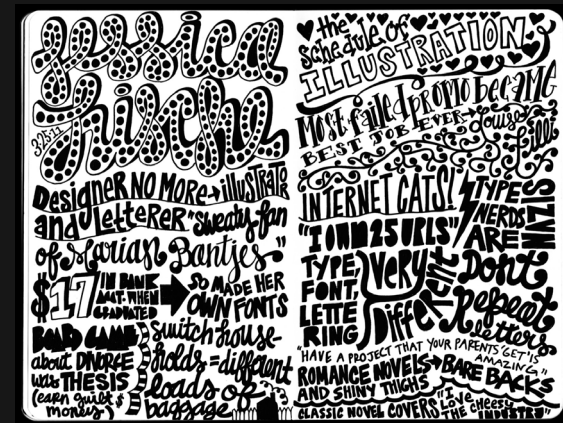 jessica
hische
3.25.11
Designer NO MORE → illustrator
and LETTERER "sweaty fan
of Marian Bantjes"
$17 IN BANK
ACCT. WHEN
GRADUATED
SO MADE HER
OWN FONTS
BOARD GAME
about DIVORCE
was THESIS
(earn guilt $
money)
switch house-
holds = different
loads of
baggage
the
schedule of
ILLUSTRATION
Most failed promo became
BEST JOB EVER →
INTERNET CATS!
"I OWN 25 URLS"
TYPE,
FONT,
LETTE
RING
Very
Different
TYPE
NERDS
ARE
NAZIS
Don't
Repeat
Letters
"HAVE A PROJECT THAT YOUR PARENTS GET IS
AMAZING"
ROMANCE NOVELS → BARE BACKS
AND SHINY THIGHS
CLASSIC NOVEL COVERS "I Love
THE CHEESY
INDUSTRY"